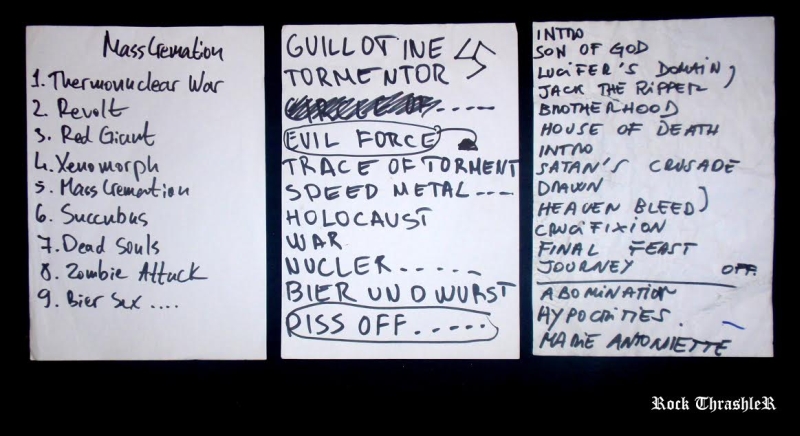 Mass Cremation
1. Thermonuclear War
2. Revolt
3. Red Giant
4. Xenomorph
5. Mass Cremation
6. Succubus
7. Dead Souls
8. Zombie Attack
9. Bier Sex ....
GUILLOTINE
TORMENTOR
.....
EVIL FORCE
TRACE OF TORMENT
SPEED METAL....
HOLOCAUST
WAR
NUCLER......
BIER UND WURST
PISS OFF.....
INTRO
SON OF GOD
LUCiFER'S DOMAiN
JACK THE RiPPER
BROTHERHOOD
HOUSE OF DEATH
INTRO
SATAN'S CRUSADE
DRAWN
HEAVEN BLEED
CRUCiFiXiON
FiNAL FEAST
JOURNEY OFF.
ABOMiNATiON
HYPOCRiTiES.
MARiE ANTONiETTE
Rock ThrashleR